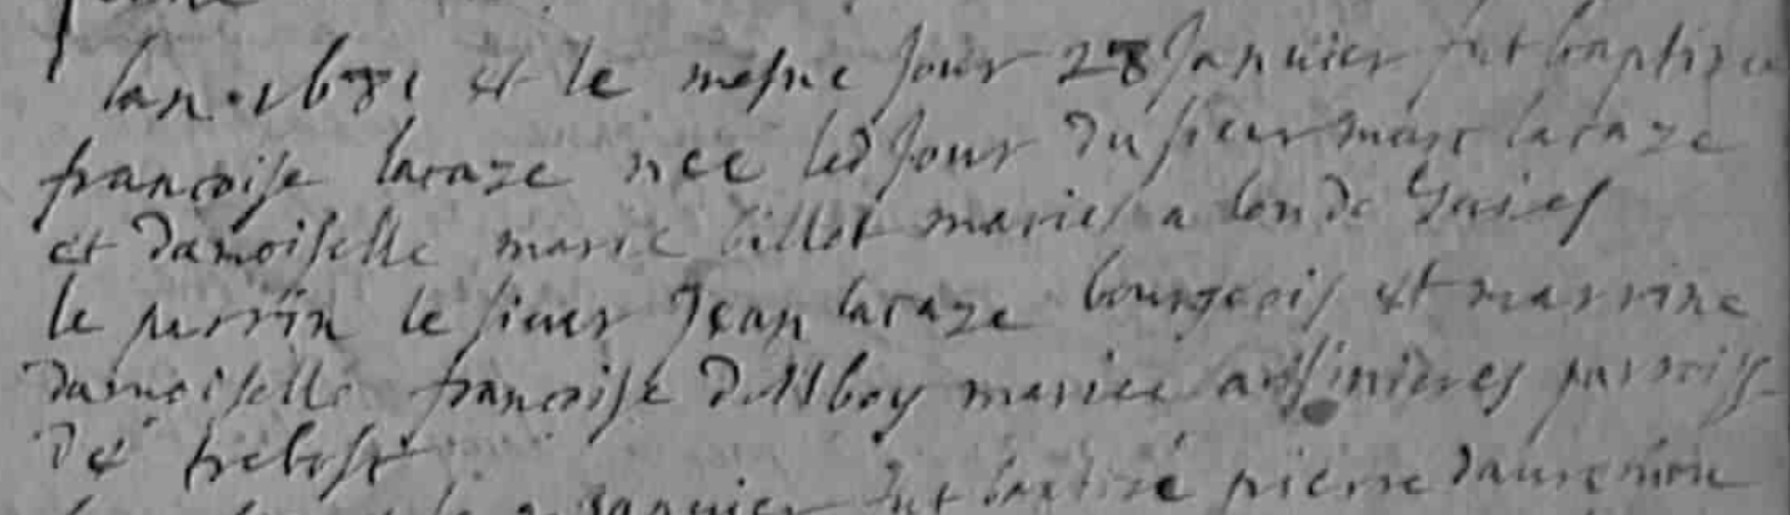 lan 1681 et le mesne jour 28 Januier fut baptizee
francoise lacaze nee led jour du sieur marc lacaze
et damoiselle marie billot maries a
le perrin le sieur Jean lacaze bourgeois et marrine
damoiselle francoise mariee parroiss
de trebosc
Januier fut baptizé pierre